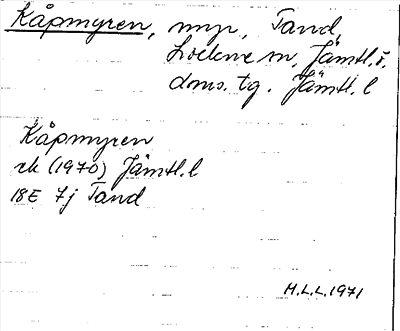 Kåpmyren, myr, Tand,
Lockne sn, Jämtl. ö.
doms. tg. Jämtl. l
Kåpmyren
ek (1970) Jämtl. l
18E 7j Tand
M.L.L. 1971